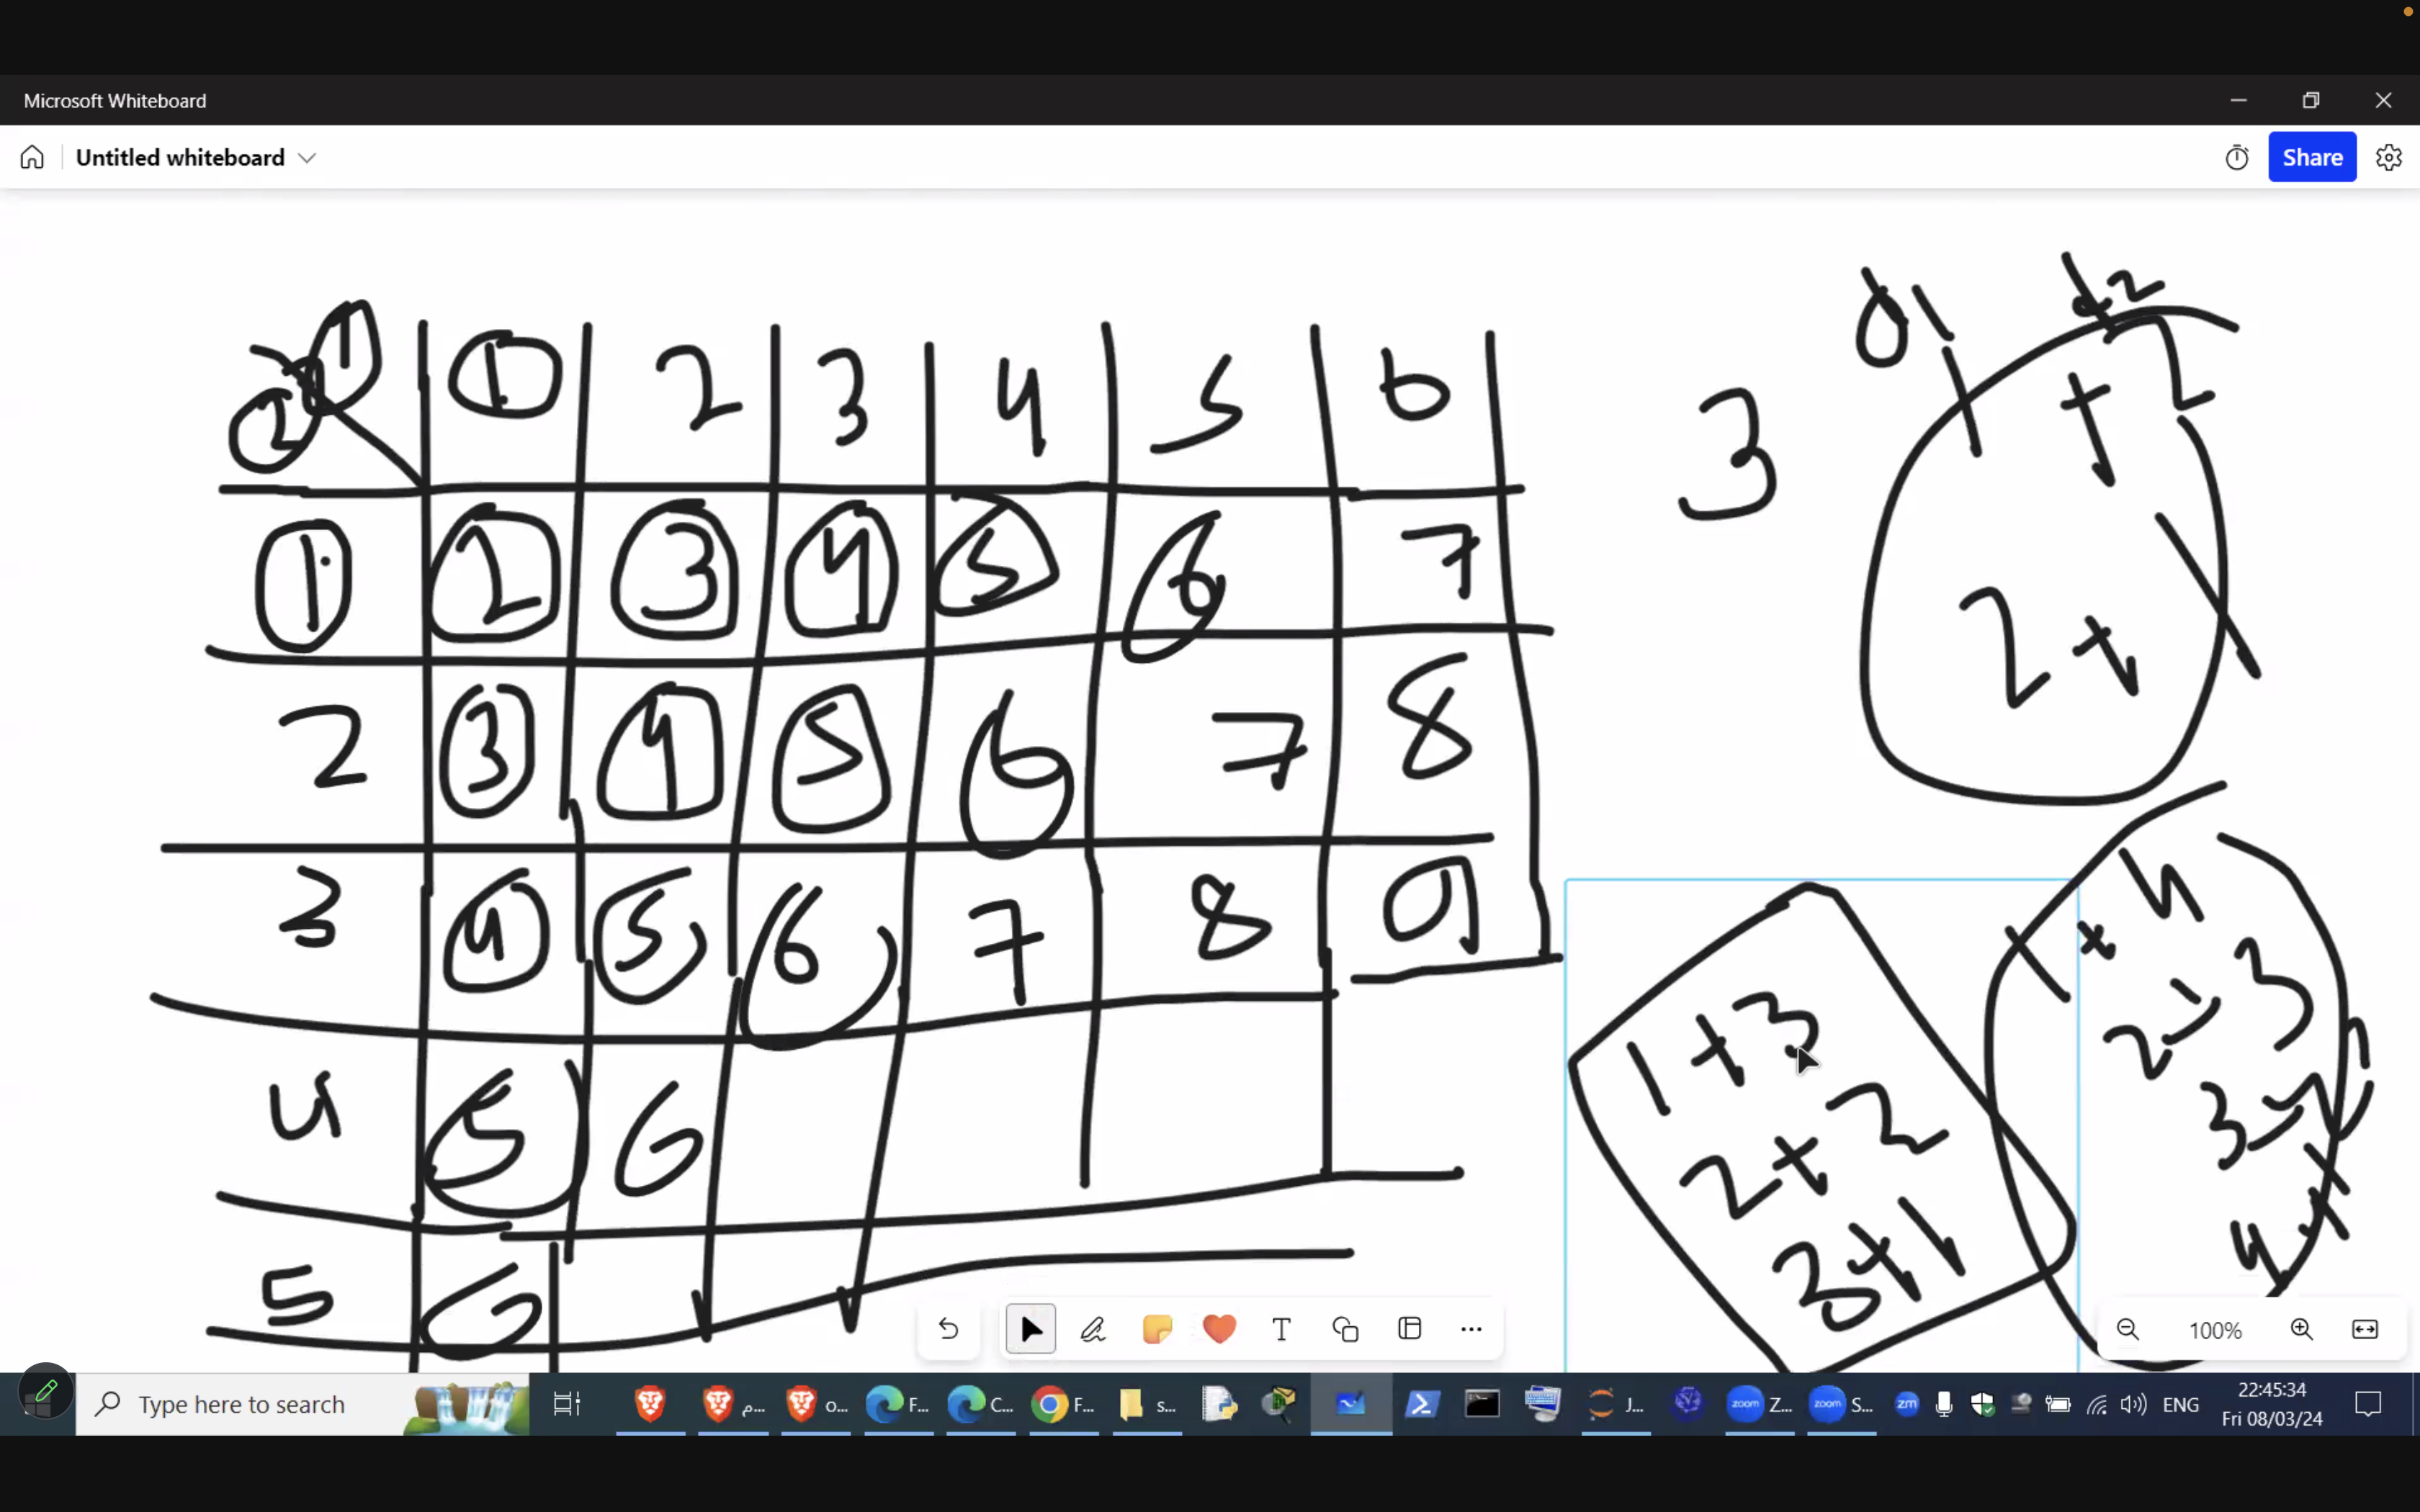 Microsoft Whiteboard
Untitled whiteboard
Share
1 2 1 2 3 4 5 6
1 2 3 4 5 6 7
2 3 4 5 6 7 8
3 4 5 6 7 8 9
4 5 6
5 6
d1 d2
3 1 + 2
2 + 1
1 + 3
2 + 2
3 + 1
1 + 4
2 + 3
3 + 2
4 + 1
T
100%
Type here to search
م...
o...
F...
C...
F...
s...
J...
zoom Z...
zoom S...
zm
ENG
22:45:34
Fri 08/03/24